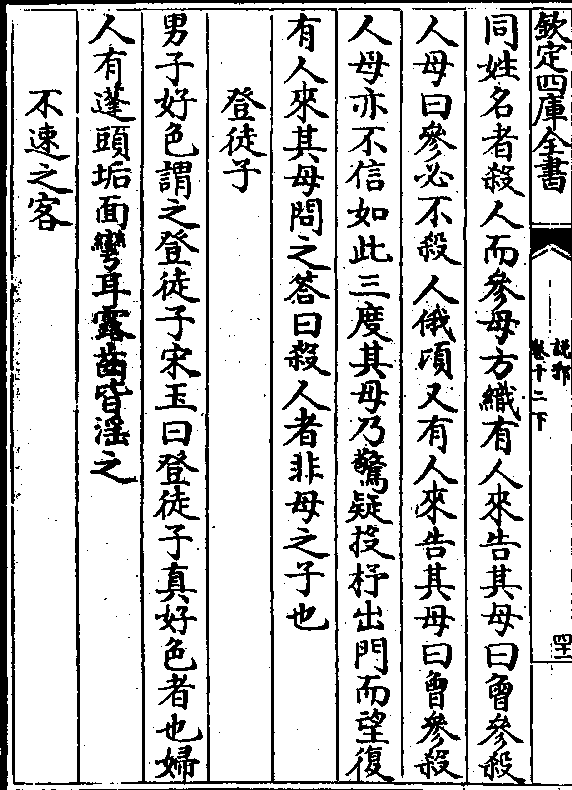 欽定四庫全書
說郛
卷十二下
四十一
同姓名者殺人而參母方織有人來告其母曰曾參殺
人母曰參必不殺人俄頃又有人來告其母曰曾參殺
人母亦不信如此三度其母乃驚疑投杼出門而望復
有人來其母問之答曰殺人者非母之子也
登徒子
男子好色謂之登徒子宋玉曰登徒子真好色者也婦
人有蓬頭垢面彎耳露齒皆滛之
不速之客